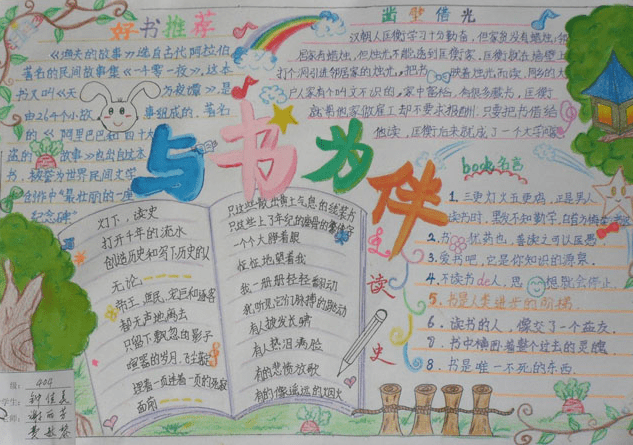 好书推荐
《渔夫的故事》选自古代阿拉伯
著名的民间故事集《一千零一夜》,这本
书又叫《天方夜谭》,是
由264个小故事组成的,著名
的《阿里巴巴和四十大
盗的故事》也出自这本
书,被誉为世界民间文学
创作中"最壮丽的一座
纪念碑"
凿壁借光
汉朝人匡衡学习十分勤奋,但家贫没有蜡烛,邻
居家有蜡烛,但烛光不能透到匡家,匡衡就在墙壁上
打个洞引进邻居家的烛光,把书映着烛光而读,同乡的大
户人家有个叫文不识的,家中富裕,有很多藏书,匡衡
就帮他家做雇工却不要求报酬,只要把书借给
他读,匡衡后来就成了一个大学
与书为伴
灯下,读史
打开千年的流水
创造历史和写下历史的人
无论
帝王、庶民、宠臣和逐客
都无声地离去
只留下飘忽的影子
喧嚣的岁月,飞尘散
踱着一页连着一页的死寂
面前
只是些散出黄土气息的线装书
只是些上了年纪的
一个个睁着眼
怔怔地望着我
我一册册轻轻翻动
我听见它们脉搏的跳动
有人披发长啸
有人热泪满脸
有的悲愤放歌
有的像遥远的烟火
读史
book名言
1.三更灯火五更鸡,正是男人
读书时,黑发不知勤学,白首方悔读书迟
2.书犹药也,善读之可以医愚
3.爱书吧,它是你知识的源泉.
4.不读书de人,思想就会停止.
5.书是人类进步的阶梯.
6.读书的人,像交了一个益友.
7.书中横卧着整个过去的灵魂.
8.书是唯一不死的东西.
级:404
学生:
师: